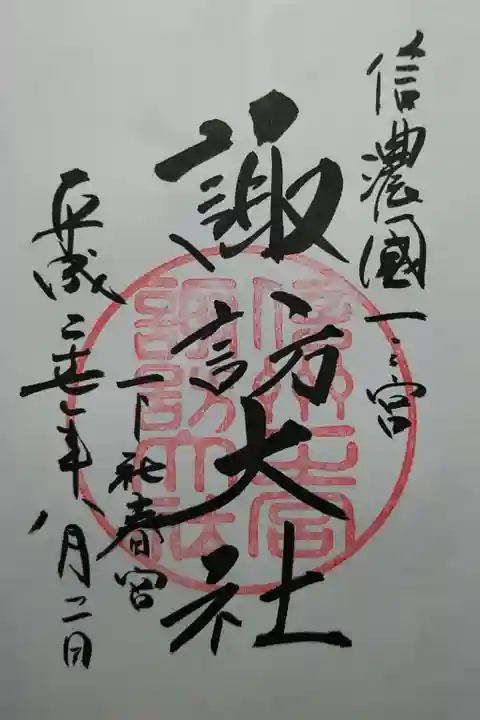 信濃國一之宮
諏訪大社
下社春宮
平成二十七年八月二日
諏訪大社